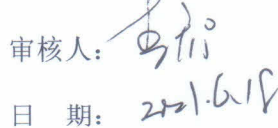 审核人：
日 期： 2021.6.18